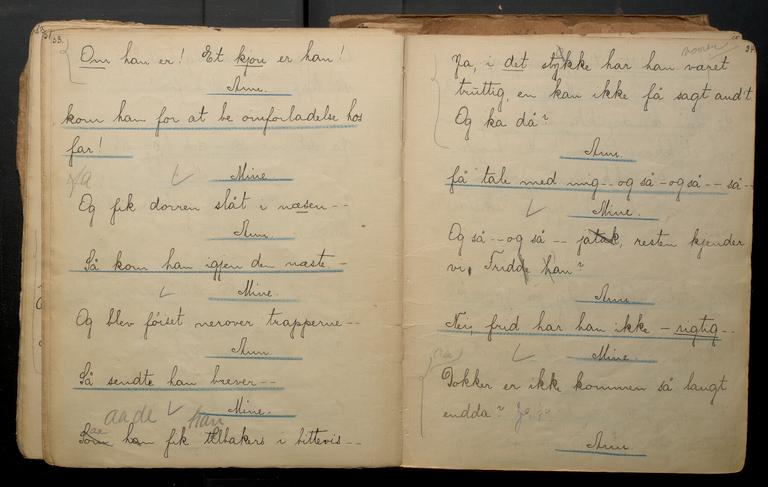 33.
Om han er! Et kjøre er han!
Ann.
kom han for at be om forladelse hos
far!
Ja
Mine.
Og fik dorren slåt i næsen --
Ann.
Så kom han igjen den næste. -
Mine.
Og blev føiset nerover trapperne --
Ann.
Så sendte han brever --
aade Mine. han
Som han fik tilbakers i bittevis --
Ja, i det stykke har han været
truttig, en kan ikke få sagt and't.
Og ka då?
Ann.
få tale med mig -- og så - også -- så --
Mine.
Og så -- og så -- jatak, resten kjender
vi. Fridde han?
Ann.
Nei, frid har han ikke - rigtig --
Mine.
Dokker er ikke kommen så langt
endda? Jo,
Ann.